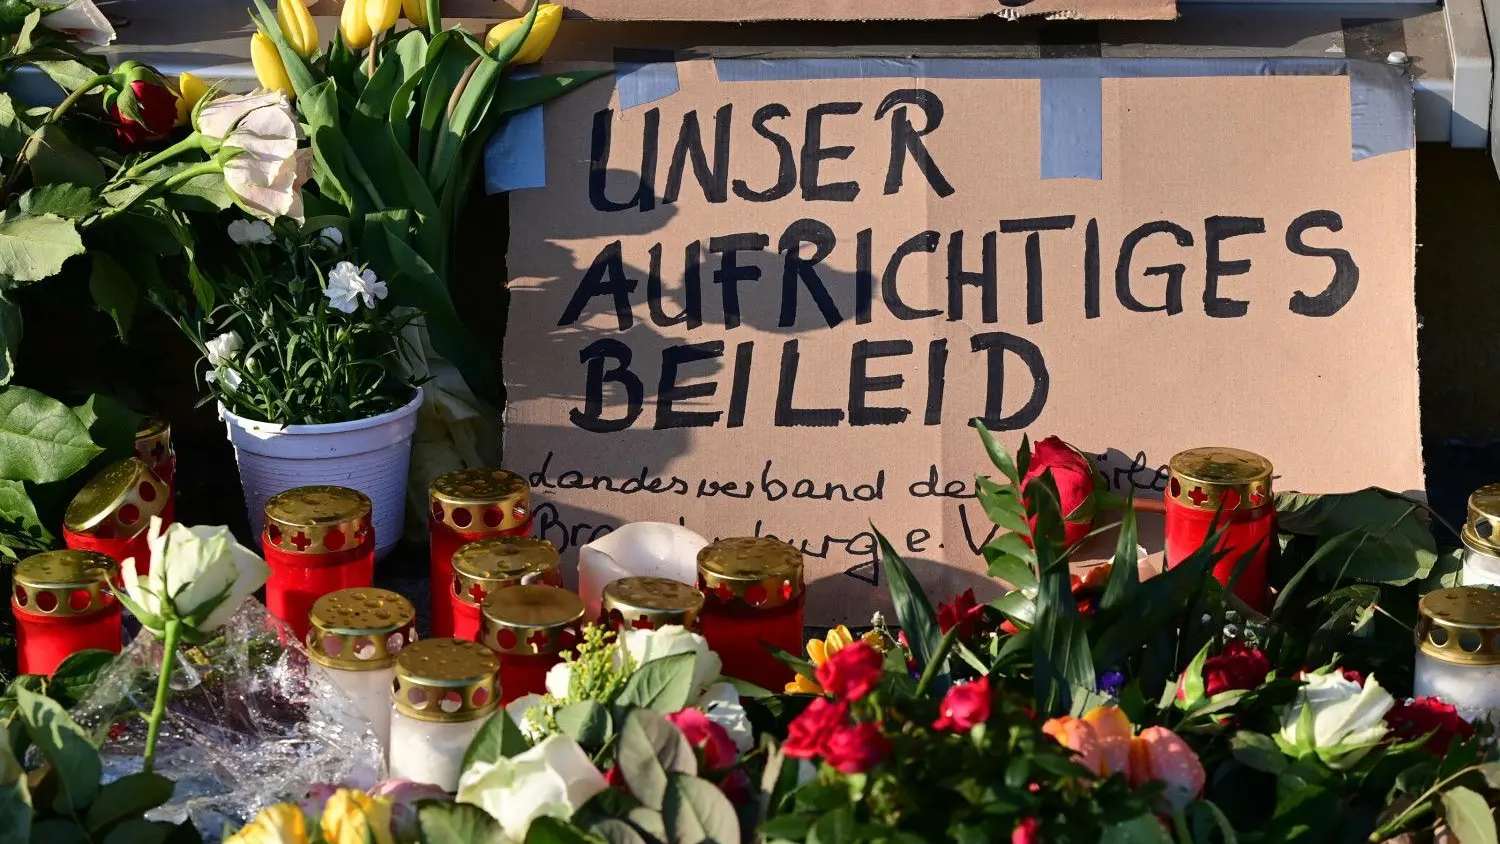 UNSER
AUFRICHTIGES
BEILEID
Landesverband de
Brandenburg e. V